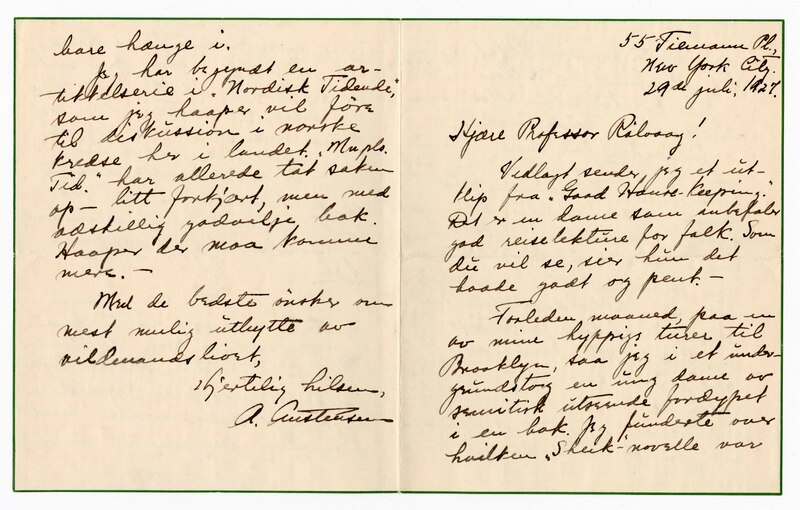 55 Tiemann Pl,
New York City.
29de juli, 1927.
Kjære Professor Rölvaag!
Vedlagt sender jeg et ut-
klip fra "Good House-Keeping".
Det er en dame som anbefaler
god reiselekture for folk. Som
du vil se, sier hun det
baade godt og pent.—
Forleden maaned, paa en
av mine hyppige turer til
Brooklyn, saa jeg i et under-
grundstog en ung dame av
semitisk utseende fordypet
i en bok. Jeg funderte over
hvilken "Sheik"-novelle var
bare hænge i.
Jeg har begyndt en ar-
tikkelserie i "Nordisk Tidende",
som jeg haaper vil före
til diskussion i norske
kredse her i landet. "Mnpls.
Tid." har allerede tat saken
op — litt forkjært, men med
adskillig godvilje bak.
Haaper der maa komme
mere.—
Med de bedste ønsker om
mest mulig utbytte av
vildmandslivet,
Hjertelig hilsen,
A.